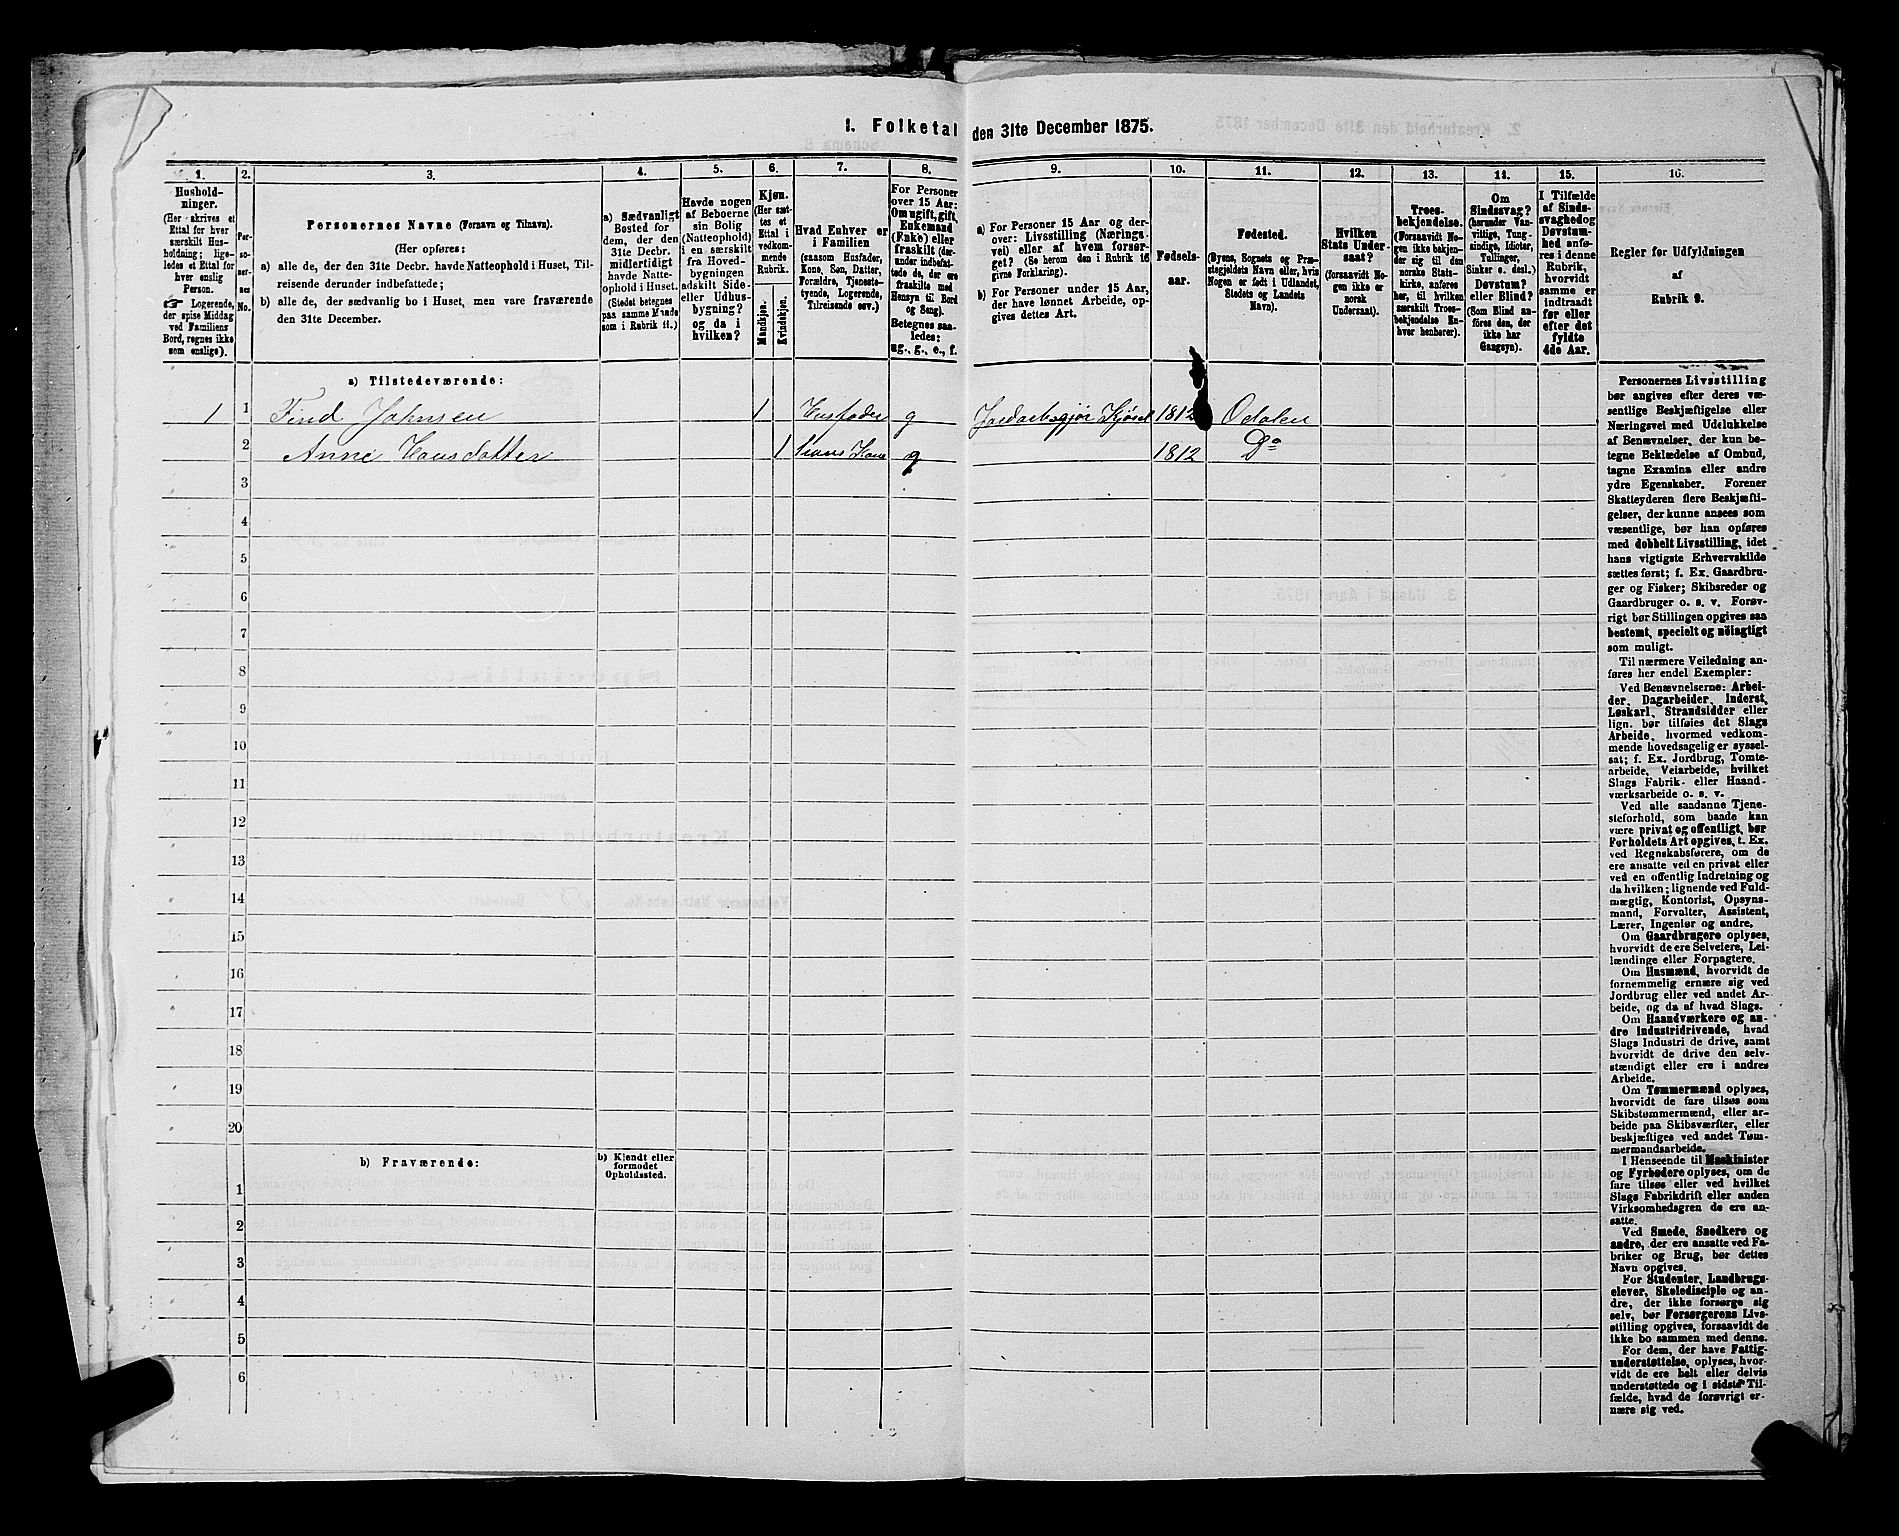 1. Folketal den 31te December 1875.
1. 2. 3. 4. 5. 6. 7. 8. 9. 10. 11. 12. 13. 14. 15. 16.
Hushold-
ninger.
(Her skrives et
Ettal for hver
særskilt Hus-
holdning; lige-
ledes et Ettal for
hver enslig
Person.
☞ Logerende,
der spise Middag
ved Familiens
Bord, regnes ikke
som enslige).
Per-
so-
ner-
nes
No.
Personernes Navne (Fornavn og Tilnavn).
(Her opføres:
a) alle de, der den 31te Decbr. havde Natteophold i Huset, Til-
reisende derunder indbefattede;
b) alle de, der sædvanlig bo i Huset, men vare fraværende
den 31te December.
a) Sædvanligt
Bosted for
dem, der den
31te Decbr.
midlertidigt
havde Natte-
ophold i Huset.
(Stedet betegnes
paa samme Maade
som i Rubrik 11.)
Havde nogen
af Beboerne
sin Bolig
(Natteophold)
i en særskilt
fra Hoved-
bygningen
adskilt Side-
eller Udhus-
bygning?
og da i
hvilken?
Kjøn.
(Her sæt-
tes et
Ettal i
vedkom-
mende
Rubrik.
Mandkjøn.
Kvindekjøn.
Hvad Enhver er
i Familien
(saasom Husfader,
Kone, Søn, Datter,
Forældre, Tjeneste-
tyende, Logerende,
Tilreisende osv.)
For Personer
over 15 Aar:
Om ugift, gift,
Enkemand
(Enke) eller
fraskilt (der-
under indbefat-
tede de, der ere
fraskilte med
Hensyn til Bord
og Seng).
Betegnes saa-
ledes:
ug., g., e., f.
a) For Personer 15 Aar og der-
over: Livsstilling (Nærings-
vei) eller af hvem forsør-
get? (Se herom den i Rubrik 16
givne Forklaring).
b) For Personer under 15 Aar,
der have lønnet Arbeide, op-
gives dettes Art.
Fødsels-
aar.
Fødested.
(Byens, Sognets og Præ-
stegjeldets Navn eller, hvis
Nogen er født i Udlandet,
Stedets og Landets
Navn).
Hvilken
Stats Under-
saat?
(forsaavidt No-
gen ikke er
norsk
Undersaat).
Troes-
bekjendelse.
(Forsaavidt No-
gen ikke bekjen-
der sig til den
norske Stats-
kirke, anføres
her, til hvilken
særskilt Troes-
bekjendelse En-
hver henhører).
Om
Sindssvag?
(herunder Van-
vittige, Tung-
sindige, Idioter,
Tullinger,
Sinker o. desl.)
Døvstum?
eller Blind?
(Som Blind an-
føres den, der
ikke har
Gangsyn).
I Tilfælde
af Sinds-
svaghed og
Døvstum-
hed anfø-
res i denne
Rubrik,
hvorvidt
samme er
indtraadt
før eller
efter det
fyldte
4de Aar.
Regler for Udfyldningen
af
Rubrik 9.
a) Tilstedeværende:
1 1 Find Johnsen 1 Husfader g Jordarb. 1812 Odalen
2 Anne Hansdatter 1 Hans Kone g 1812 Do
3
4
5
6
7
8
9
10
11
12
13
14
15
16
17
18
19
20
b) Fraværende:
b) Kjendt eller
formodet
Opholdssted.
1
2
3
4
5
6
Personernes Livsstilling
bør angives efter deres væ-
sentlige Beskjæftigelse eller
Næringsvei med Udelukkelse
af Benævnelser, der kun be-
tegne Beklædelse af Ombud,
tagne Examina eller andre
ydre Egenskaber. Forener
Skatteyderen flere Beskjæfti-
gelser, der kunne ansees som
væsentlige, bør han opføres
med dobbelt Livsstilling, idet
hans vigtigste Erhvervskilde
sættes først; f. Ex. Gaardbru-
ger og Fisker; Skibsreder og
Gaardbruger o. s. v. Forøv-
rigt bør Stillingen opgives saa
bestemt, specielt og nøiagtigt
som muligt.
Til nærmere Veiledning an-
føres her endel Exempler:
Ved Benævnelserne: Arbei-
der, Dagarbeider, Inderst,
Løskarl, Strandsidder eller
lign. bør tilføies det Slags
Arbeide, hvormed vedkom-
mende hovedsagelig er syssel-
sat; f. Ex. Jordbrug, Tomte-
arbeide, Veiarbeide, hvilket
Slags Fabrik- eller Haand-
værksarbeide o. s. v.
Ved alle saadanne Tjene-
steforhold, som baade kan
være privat og offentligt, bør
Forholdets Art opgives, t. Ex.
ved Regnskabsførere, om de
ere ansatte ved en privat eller
ved en offentlig Indretning og
da hvilken; lignende ved Fuld-
mægtig, Kontorist, Opsyns-
mand, Forvalter, Assistent,
Lærer, Ingeniør og andre.
Om Gaardbrugere oplyses,
hvorvidt de ere Selveiere, Lei-
lændinge eller Forpagtere.
Om Husmænd, hvorvidt de
fornemmelig ernære sig ved
Jordbrug eller ved andet Ar-
beide, og da af hvad Slags.
Om Haandværkere og an-
dre Industridrivende, hvad
Slags Industri de drive, samt
hvorvidt de drive den selv-
stændigt eller ere i andres
Arbeide.
Om Tømmermænd oplyses,
hvorvidt de fare tilsøs som
Skibstømmermænd, eller ar-
beide paa Skibsværfter, eller
beskjæftiges ved andet Tøm-
mermandsarbeide.
I Henseende til Maskinister
og Fyrbødere oplyses, om de
fare tilsøs eller ved hvilket
Slags Fabrikdrift eller anden
Virksomhedsgren de ere an-
satte.
Ved Smede, Snedkere og
andre, der ere ansatte ved Fa-
briker og Brug, bør dettes
Navn opgives.
For Studenter, Landbrugs-
elever, Skoledisciple og an-
dre, der ikke forsørge sig
selv, bør Forsørgerens Livs-
stilling opgives, forsaavidt de
ikke bo sammen med denne.
For dem, der have Fattig-
understøttelse, oplyses, hvor-
vidt de ere helt eller delvis
understøttede og i sidste Til-
fælde, hvad de forøvrigt er-
nære sig ved.